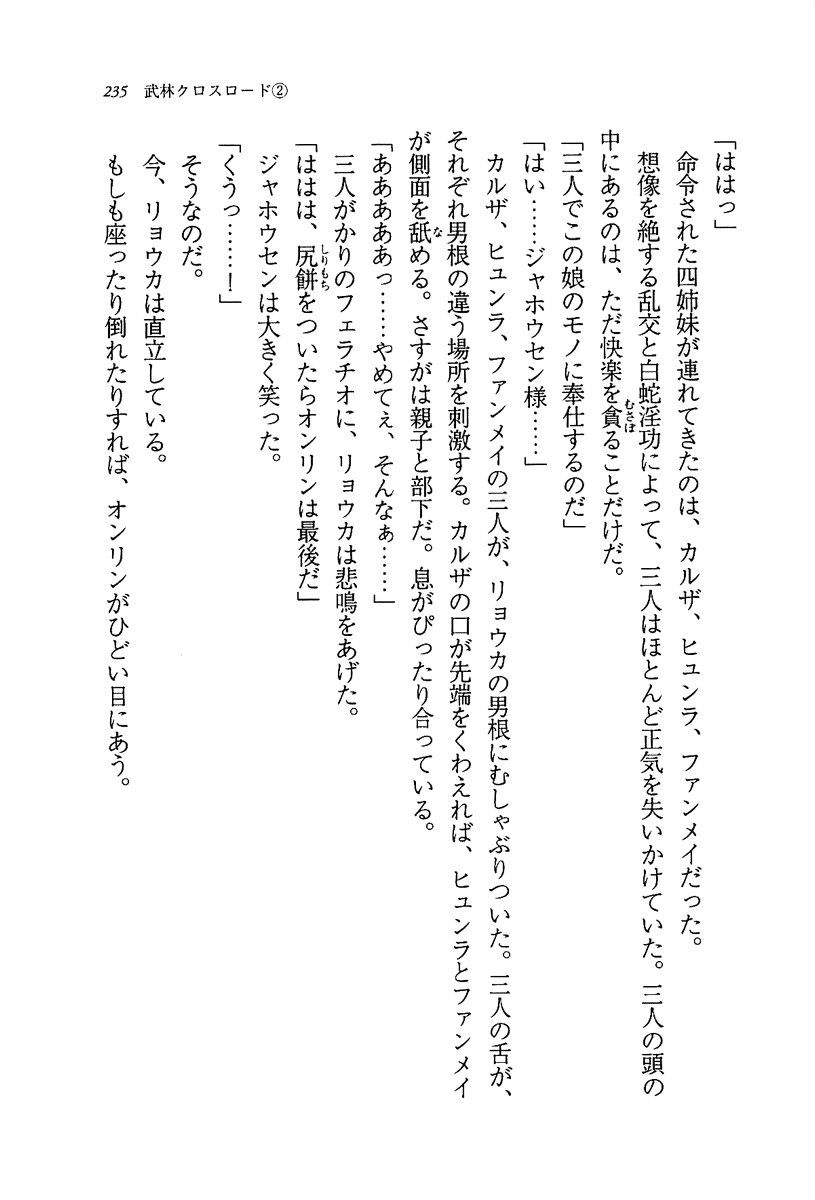 235 武林クロスロード②
「ははっ」
命令された四姉妹が連れてきたのは、カルザ、ヒュンラ、ファンメイだった。
想像を絶する乱交と白蛇淫功によって、三人はほとんど正気を失いかけていた。三人の頭の
中にあるのは、ただ快楽を貪ることだけだ。
「三人でこの娘のモノに奉仕するのだ」
「はい……ジャホウセン様……」
カルザ、ヒュンラ、ファンメイの三人が、リョウカの男根にむしゃぶりついた。三人の舌が、
それぞれ男根の違う場所を刺激する。カルザの口が先端をくわえれば、ヒュンラとファンメイ
が側面を舐める。さすがは親子と部下だ。息がぴったり合っている。
「あああああっ……やめてぇ、そんなぁ……」
三人がかりのフェラチオに、リョウカは悲鳴をあげた。
「ははは、尻餅をついたらオンリンは最後だ」
ジャホウセンは大きく笑った。
「くうっ……！」
そうなのだ。
今、リョウカは直立している。
もしも座ったり倒れたりすれば、オンリンがひどい目にあう。